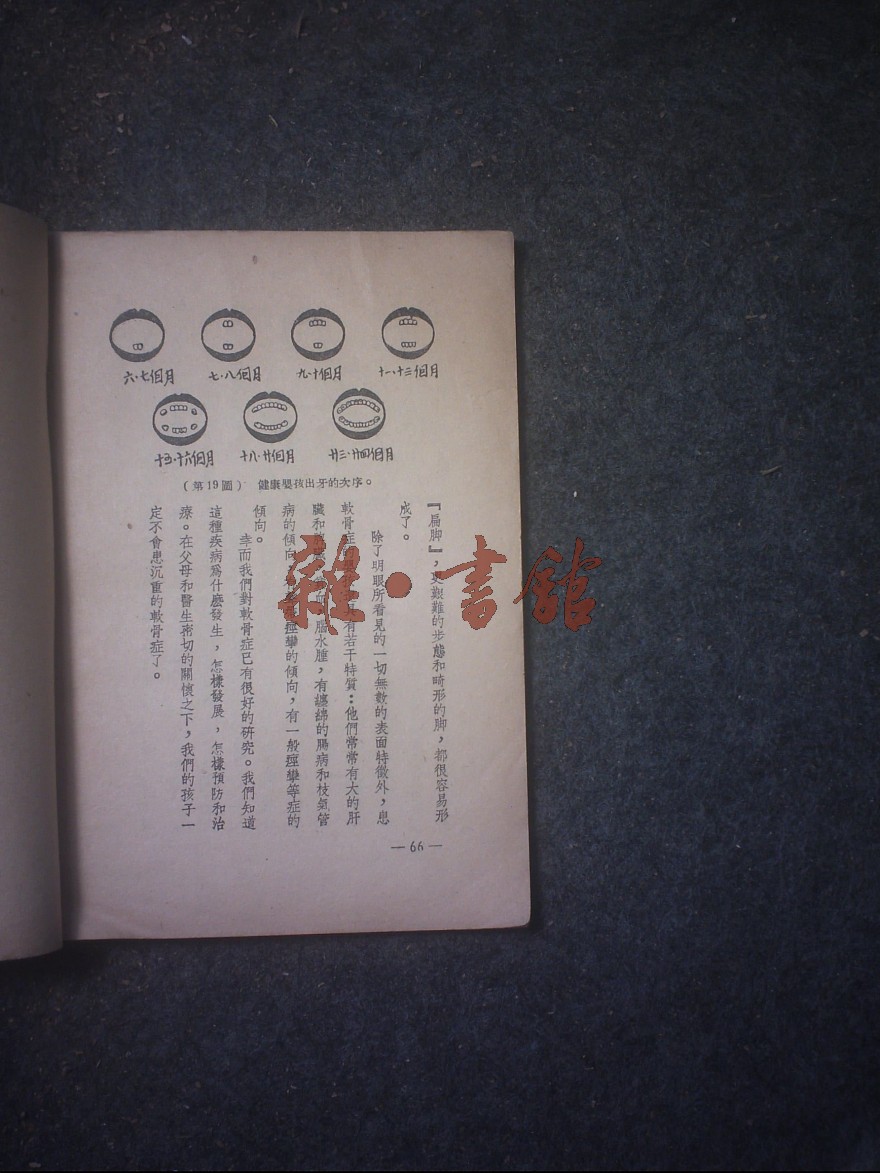 六·七個月
七·八個月
九·十個月
十一·十三個月
十五·十六個月
十八·廿個月
廿三·廿四個月
(第19圖) 健康嬰孩出牙的次序。
『扁脚』,更艱難的步態和畸形的脚,都很容易形
成了。
除了明眼所看見的一切無數的表面特徵外,患
軟骨症有若干特質:他們常常有大的肝
臟和腦水腫,有纏綿的腸病和枝氣管
病的傾向,痙攣的傾向,有一般痙攣等症的
傾向。
幸而我們對軟骨症已有很好的研究。我們知道
這種疾病爲什麽發生,怎樣發展,怎樣預防和治
療。在父母和醫生密切的關懷之下,我們的孩子一
定不會患沉重的軟骨症了。
— 66 —
雜·書館